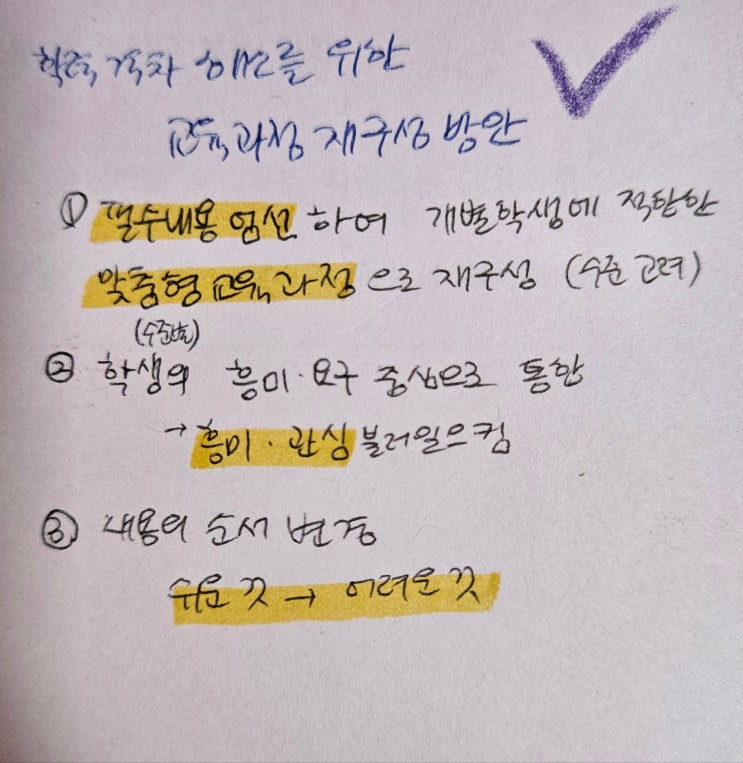 학력격차 해소를 위한
교육과정 재구성 방안
① 필수내용 엄선하여 개별학생에 적합한
맞춤형 교육과정으로 재구성 (수준 고려)
(수준별)
② 학생의 흥미·요구 중심으로 통합
→ 흥미·관심 불러일으킴
③ 내용의 순서 변경
쉬운 것 → 어려운 것